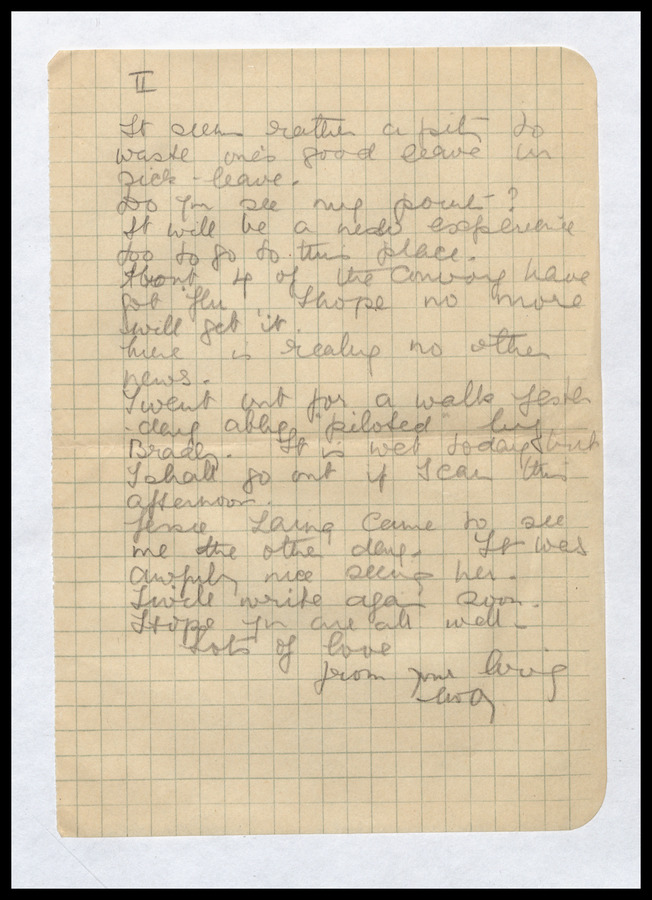 II
It seems rather a pity to
waste one's good leave in
sick-leave.
Do you see my point?
It will be a new experience
too to go to this place.
About 4 of the Convoy have
got 'flu, I hope no more
will get it.
There is really no other
news.
I went out for a walk yester
-day ably "piloted" by
Brady. It is wet today but
I shall go out if I can this
afternoon.
Jessie Laing came to see
me the other day. It was
awfully nice seeing her.
I will write again soon.
Hope you are all well -
Lots of love
from your loving